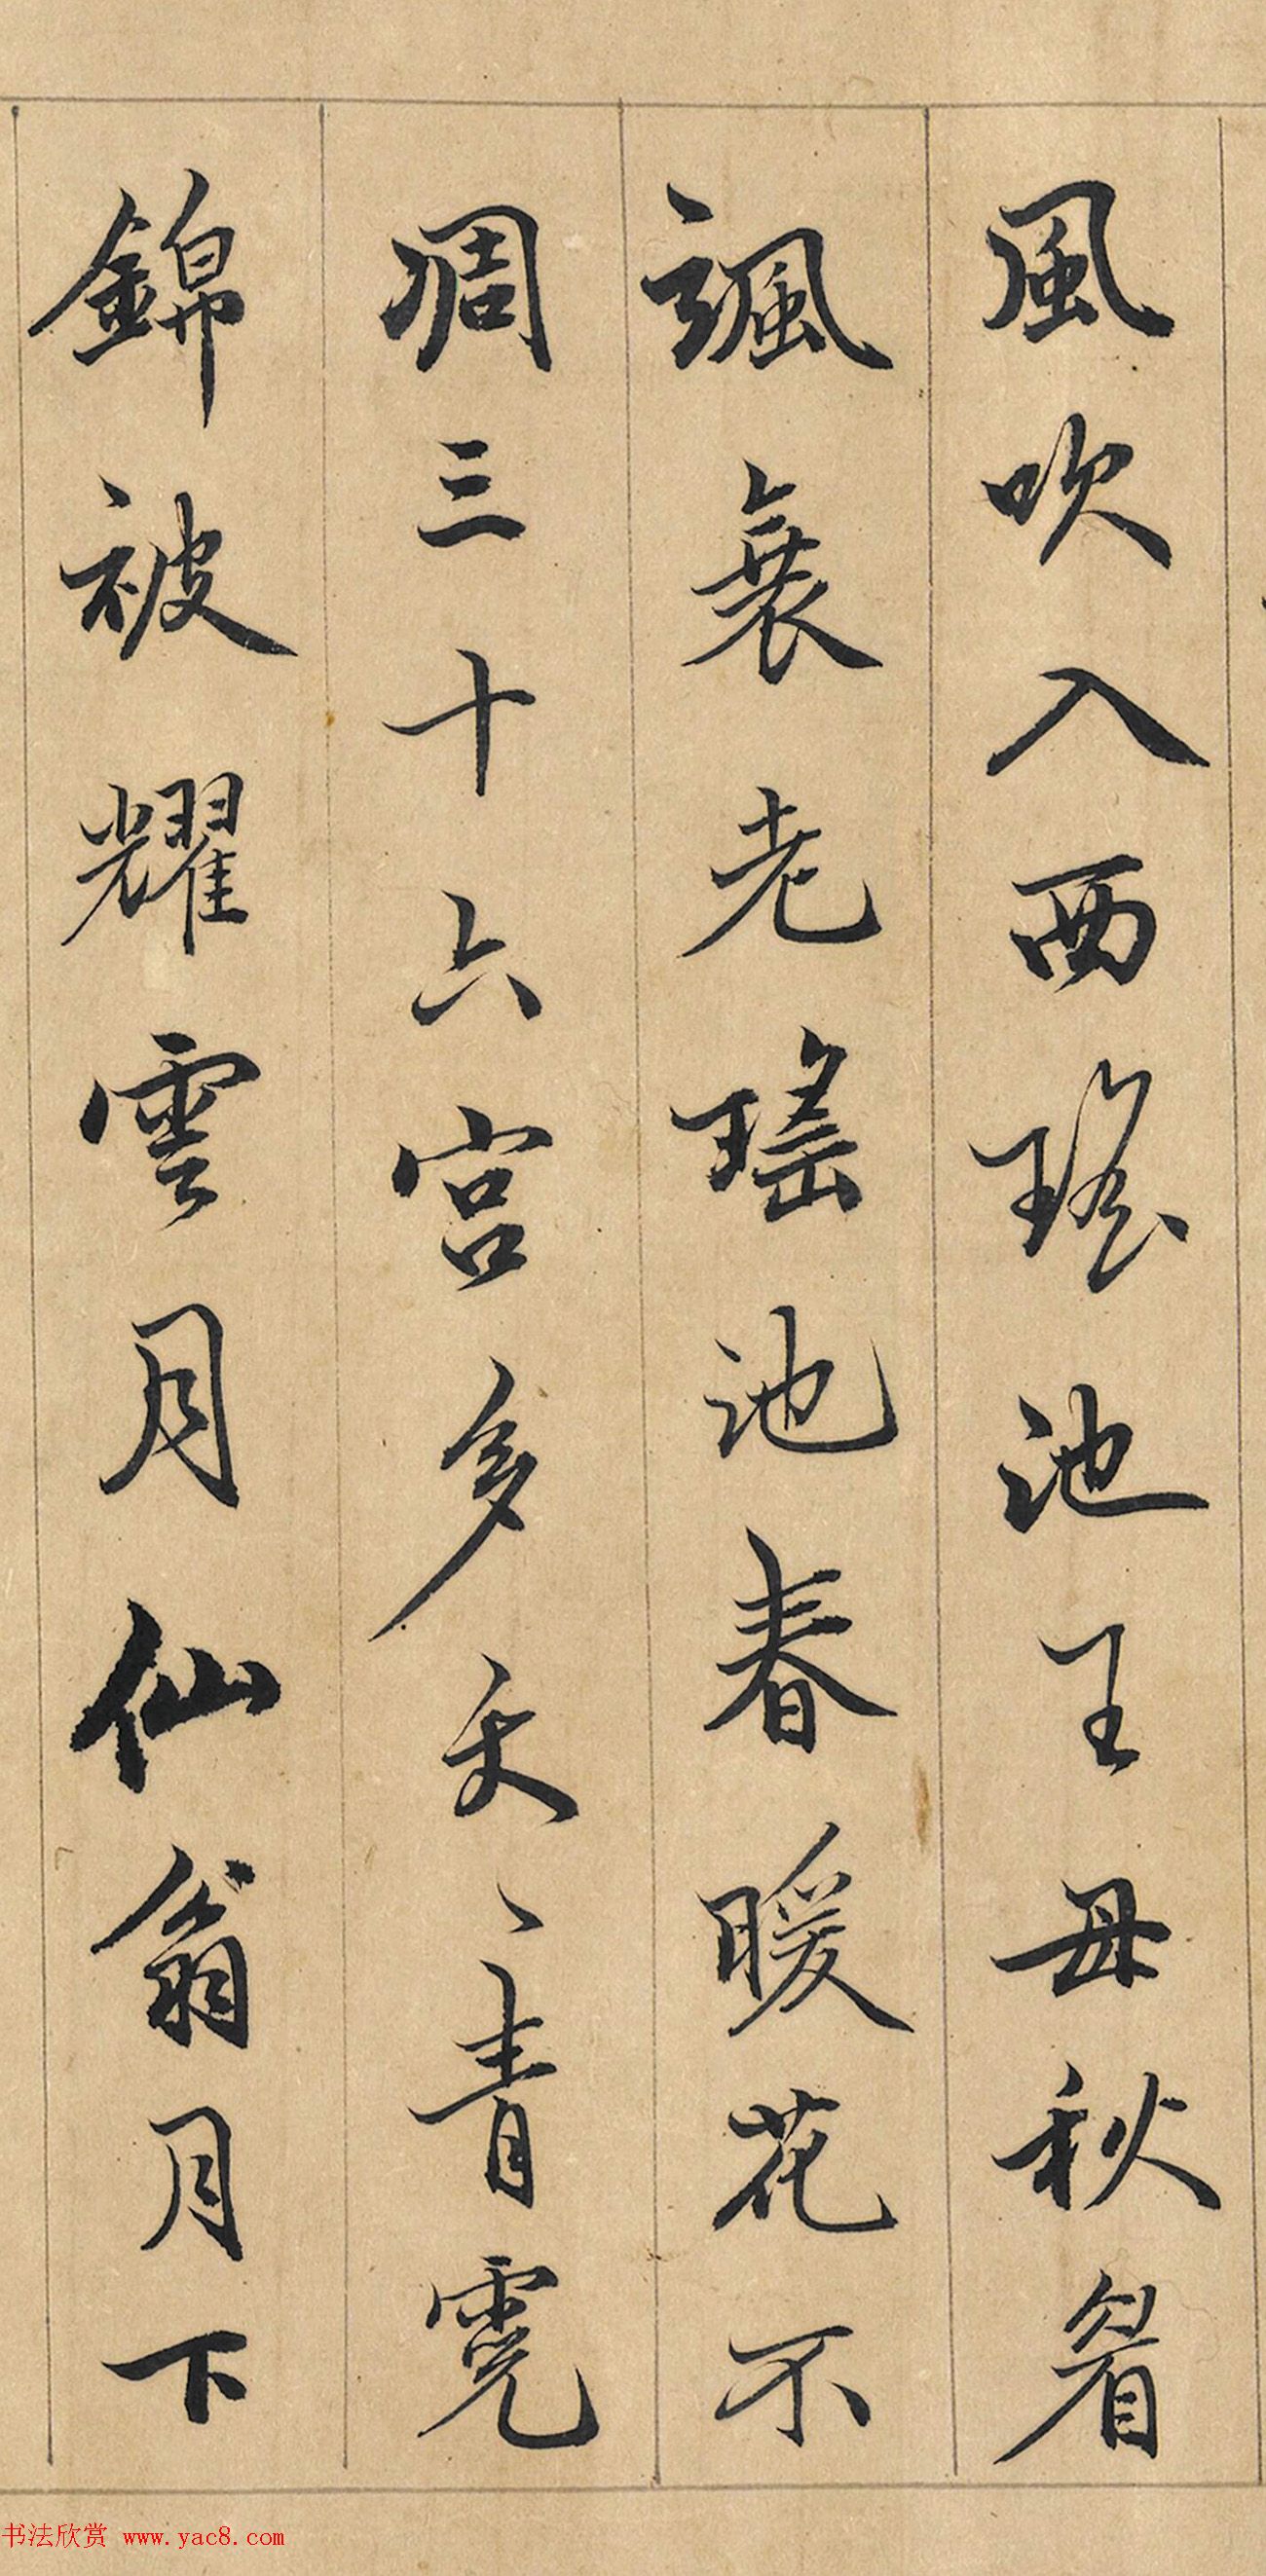 風吹入西瑤池王母秋着
颯衰老瑤池春暖花不
凋三十六宮多夭、青霓
錦被耀雲月仙翁月下
书法欣赏 www.yac8.com